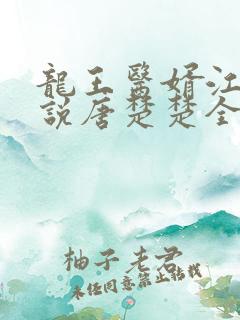 龍王醫婿江
說唐楚楚全
柚子老君
未任同意禁止转载